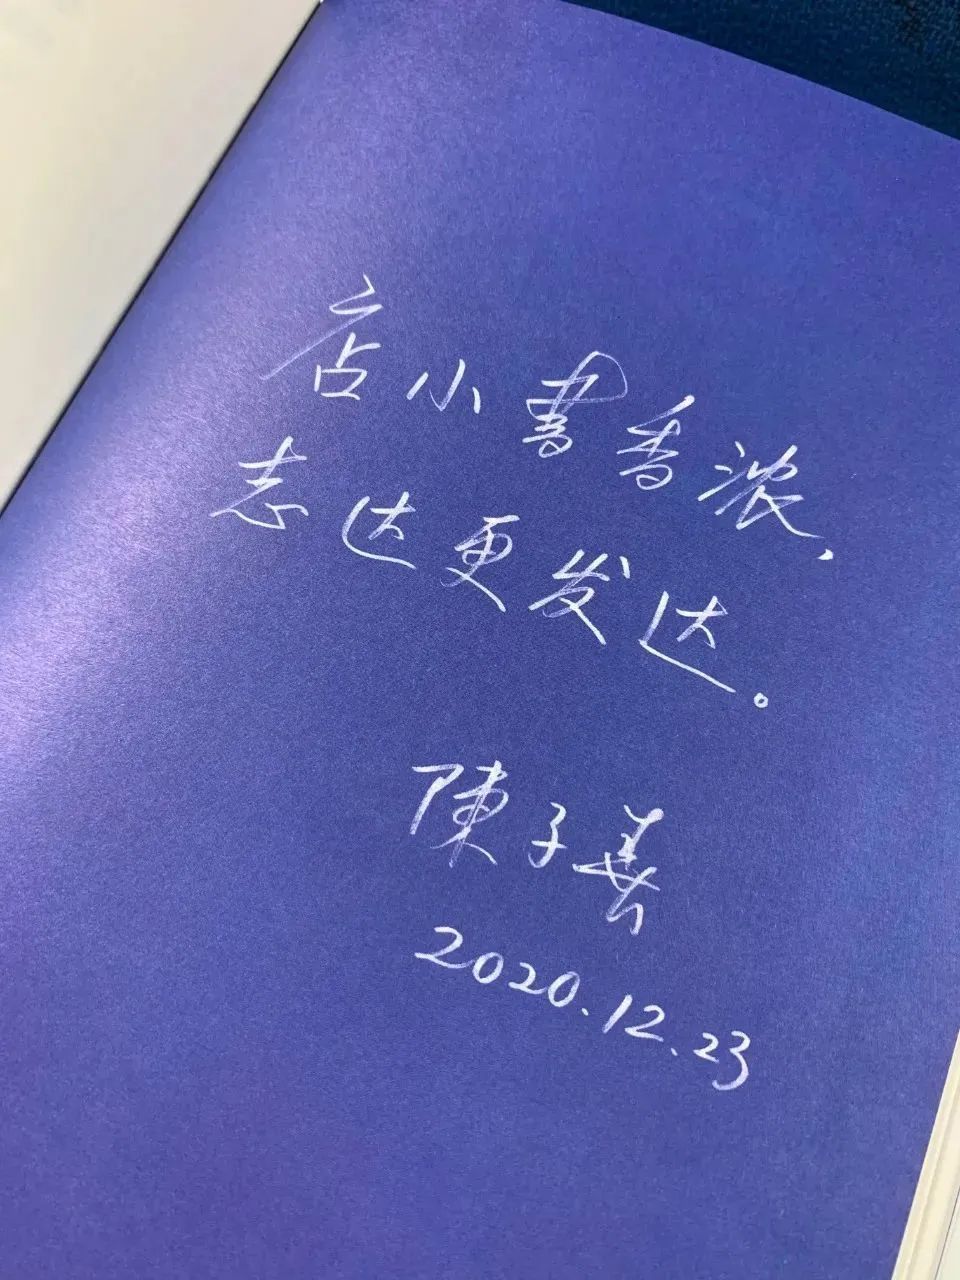 店小書香浓，
志达更发达。
陳子善
2020.12.23